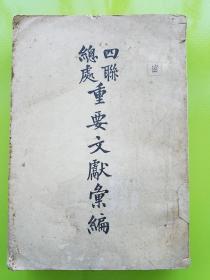 四聯
總處
重要文獻彙編